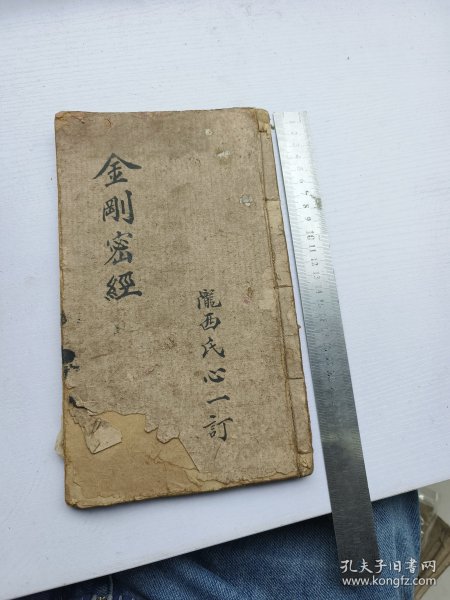 金剛密經
隴西氏心一訂
4 5 6 7 8 9 10 11 12 13
孔夫子旧书网
www.kongfz.com